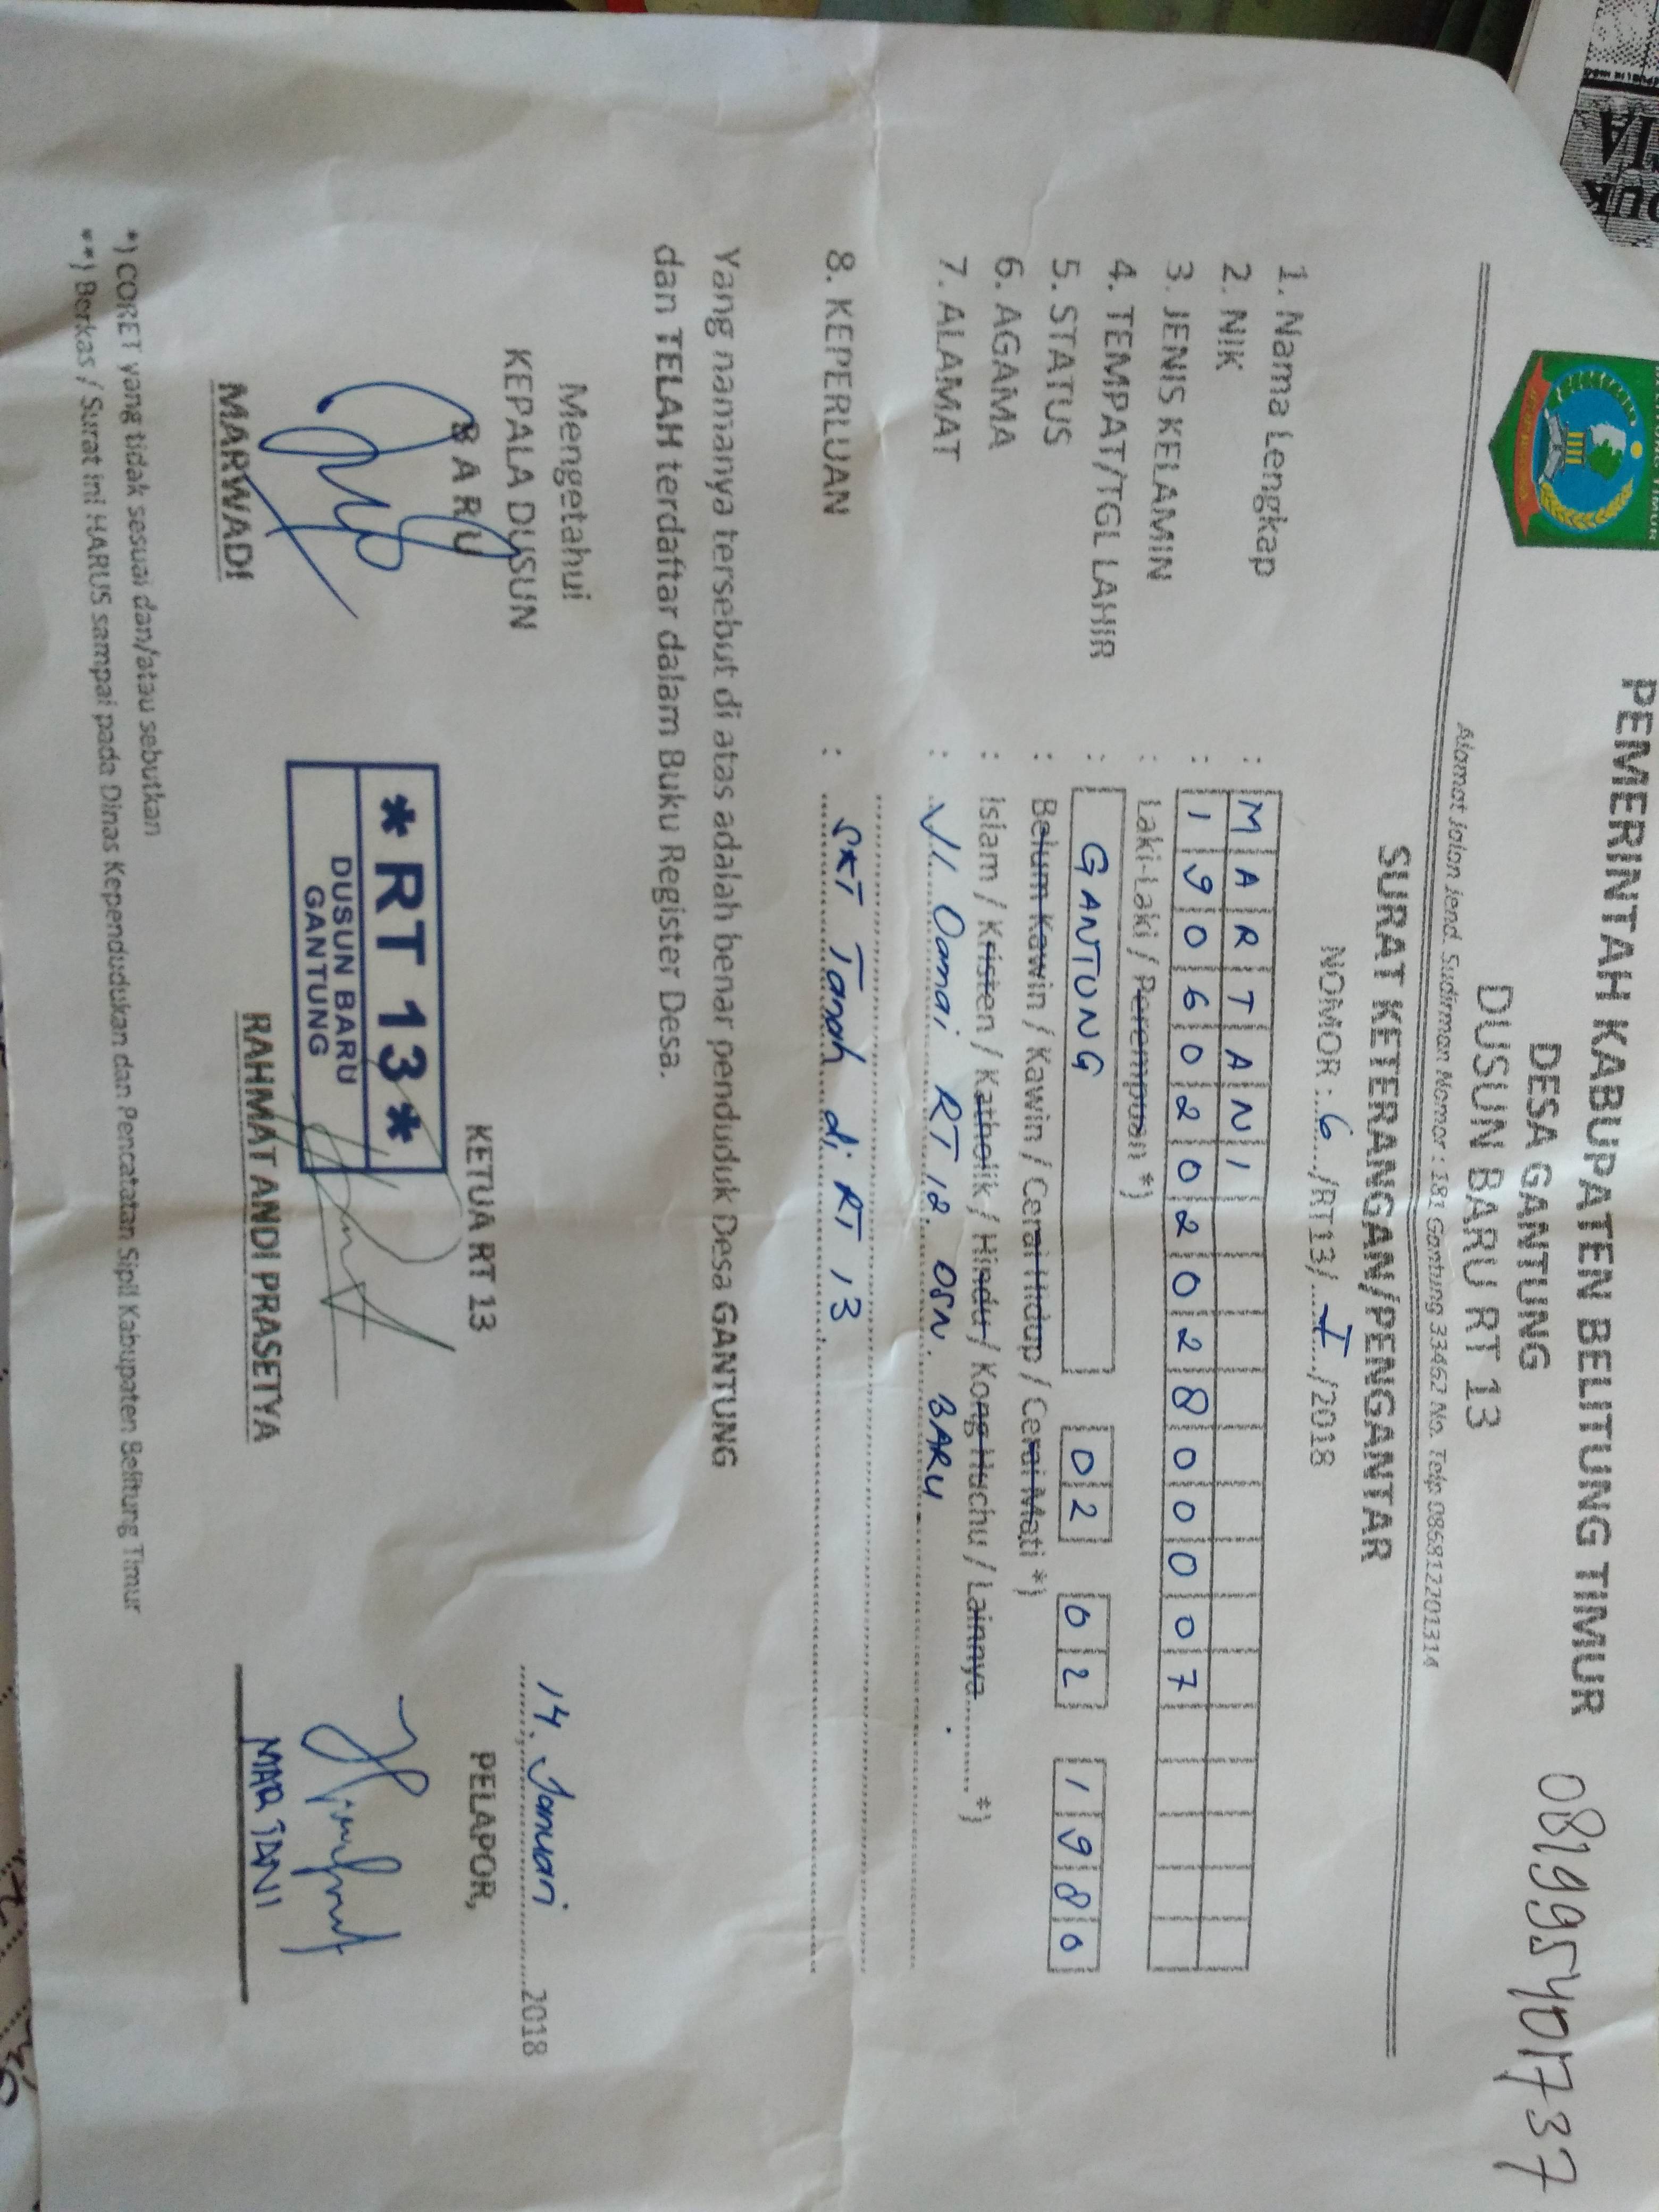 PEMERINTAH KABUPATEN BELITUNG TIMUR
DESA GANTUNG
DUSUN BARU RT 13
081995401737
Alamat Jalan Jend. Sudirman Nomor : 181 Gantung 33462 No. Telp 086812201314
SURAT KETERANGAN/PENGANTAR
NOMOR : 6 /RT13/ I /2018
1. Nama Lengkap : MARTANI
2. NIK : 1906020202800007
3. JENIS KELAMIN : Laki-Laki / Perempuan *)
4. TEMPAT/TGL LAHIR : GANTUNG 02 02 1980
5. STATUS : Belum Kawin / Kawin / Cerai Hidup / Cerai Mati *)
6. AGAMA : Islam / Kristen / Katholik / Hindu / Kong Huchu / Lainnya.......... *)
7. ALAMAT : Jl Damai RT 12. DSN. BARU
8. KEPERLUAN : SKT Tanah di RT 13.
Yang namanya tersebut di atas adalah benar penduduk Desa GANTUNG
dan TELAH terdaftar dalam Buku Register Desa.
14. Januari 2018
Mengetahui
KEPALA DUSUN
BARU
KETUA RT 13
PELAPOR,
* RT 13 *
DUSUN BARU
GANTUNG
MARWADI
RAHMAT ANDI PRASETYA
MARTANI
*) CORET yang tidak sesuai dan/atau sebutkan
**) Berkas / Surat ini HARUS sampai pada Dinas Kependudukan dan Pencatatan Sipil Kabupaten Belitung Timur